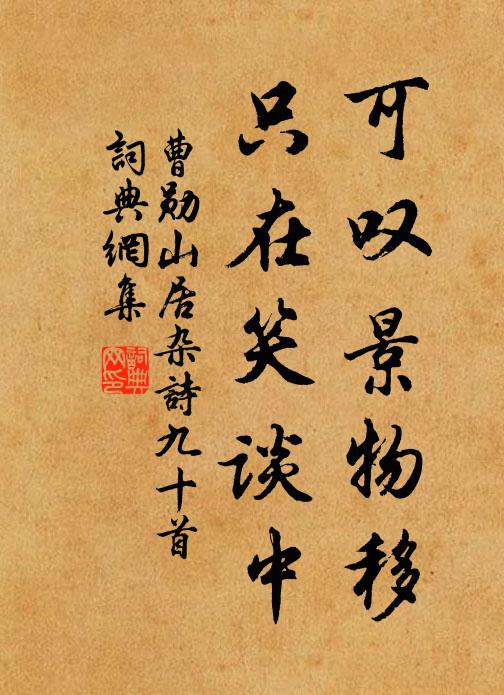 可叹景物移
只在笑谈中
曹勋山居杂詩九十首
詞典網集
詞典網印